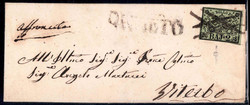 affrancata
ORVIETO
All'Illmo Sigr Sigr Prone Colmo
Sigr Angelo Martucci
Viterbo